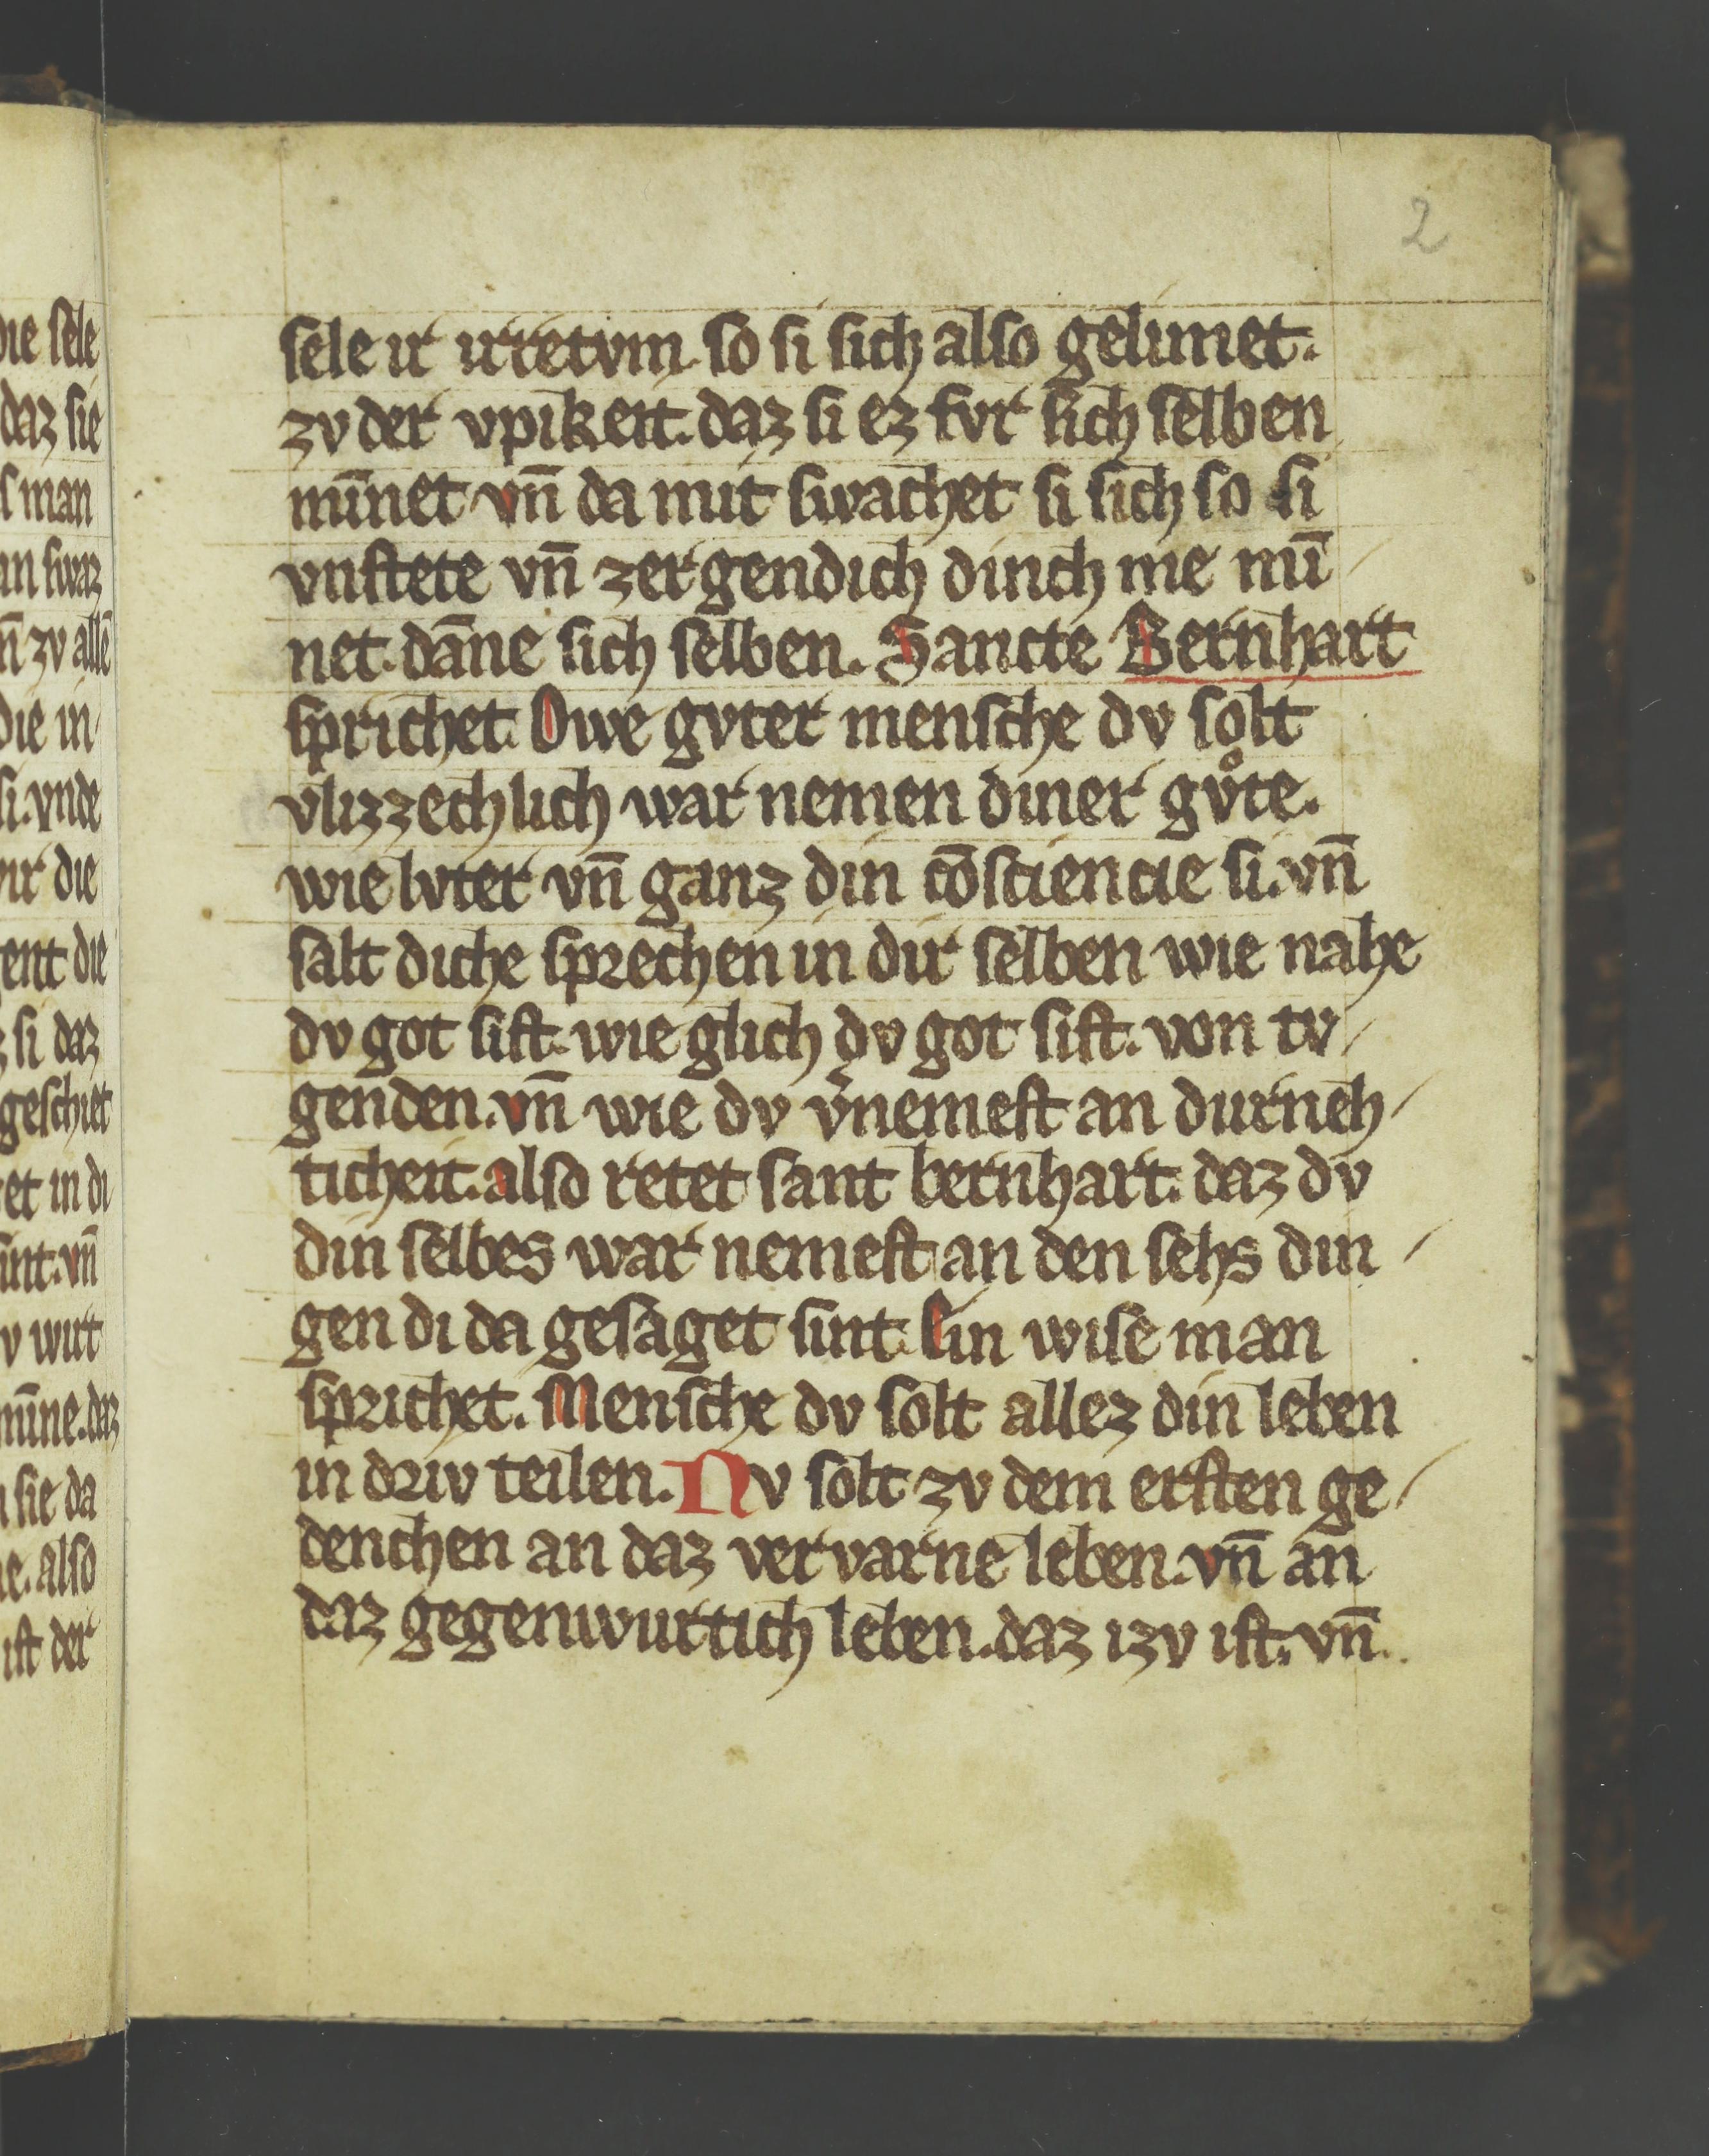 2
sele ir irretvm. so si sich also gelimet.
zv der vpikeit. daz si ez fvr sich selben
mīnet vn̄ da mit swachet si sich so si
vnstete vn̄ zergendich dinch me mī
net. dāne sich selben. Sancte Bernhart
sprichet. Owe gvter mensche dv solt
vlizzechlich war nemen diner gv̊te.
wie lvter vn̄ ganz din cōsciencie si. vn̄
salt diche sprechen in dir selben wie nahe
dv got sist. wie glich dv got sist. von tv
genden. vn̄ wie dv v̾nemest an durneh
ticheit. also retet sant bernhart. daz dv
din selbes war nemest an den sehs din
gen di da gesaget sint. Ein wise man
sprichet. Mensche dv solt allez din leben
in driv teilen. Nv solt zv dem ersten ge
denchen an daz vervarne leben. vn̄ an
daz gegenwurtich leben. daz izv ist. vn̄
die sele
daz sie
man
zv allē
die in
si. vnde
die
ent die
si daz
geschiet
et in di
int. vn̄
v wirt
mīne. daz
sie da
e. also
ist der